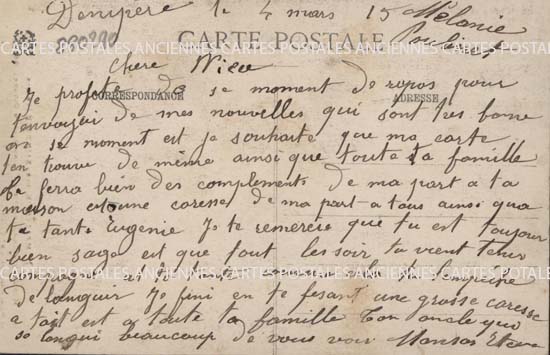 Dompierre le 4 mars 15 Mélanie
560290
CARTE POSTALE
Chere Niece
CORRESPONDANCE
ADRESSE
Je profite de se moment de repos pour
t'envoyer de mes nouvelles qui sont tres bonne
en se moment est je souhaite que ma carte
t'en trouve de même ainsi que toute ta famille
Te ferra bien des complements de ma part a ta
maison est une caresse de ma part a tous ainsi qua
ta tante Eugenie Je te remercie que tu est toujour
bien sage est que tout les soir tu vient
CARTES POSTALES ANCIENNES CARTES POSTALES ANCIENNES
de langeur Je fini en te fesant une grosse caresse
a toit est a toute ta famille Ton oncle qui
se languit beaucoup de vous voir